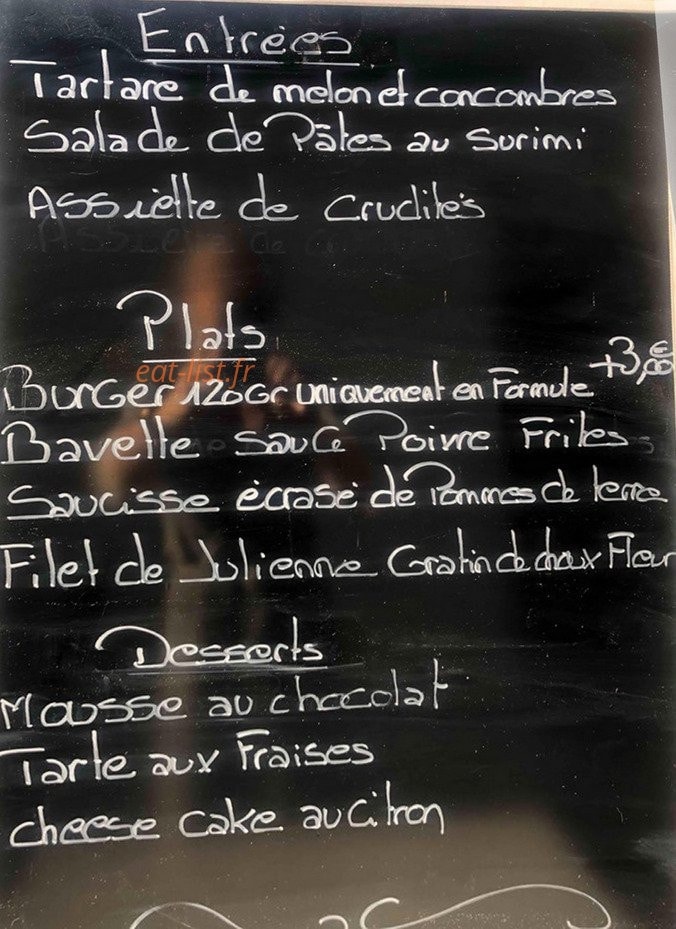 Entrées
Tartare de melon et concombres
Salade de Pâtes au Surimi
Assiette de Crudités
Plats
eat-list.fr
+3,00€
Burger 120Gr uniquement en Formule
Bavette sauce Poivre Frites
Saucisse écrasé de Pommes de terre
Filet de Julienne Gratin de choux Fleur
Desserts
Mousse au chocolat
Tarte aux Fraises
cheese cake au citron